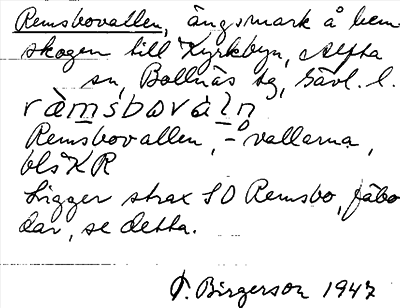 Remsbovallen, ängsmark å hem
skogen till Kyrkbyn, Alfta
sn, Bollnäs tg, Gävl. l.
ràmsbovàln
Remsbovallen, -vallarna,
bls KR
Ligger strax SO Remsbo, fäbo
dar, se detta.
T. Birgerson 1947